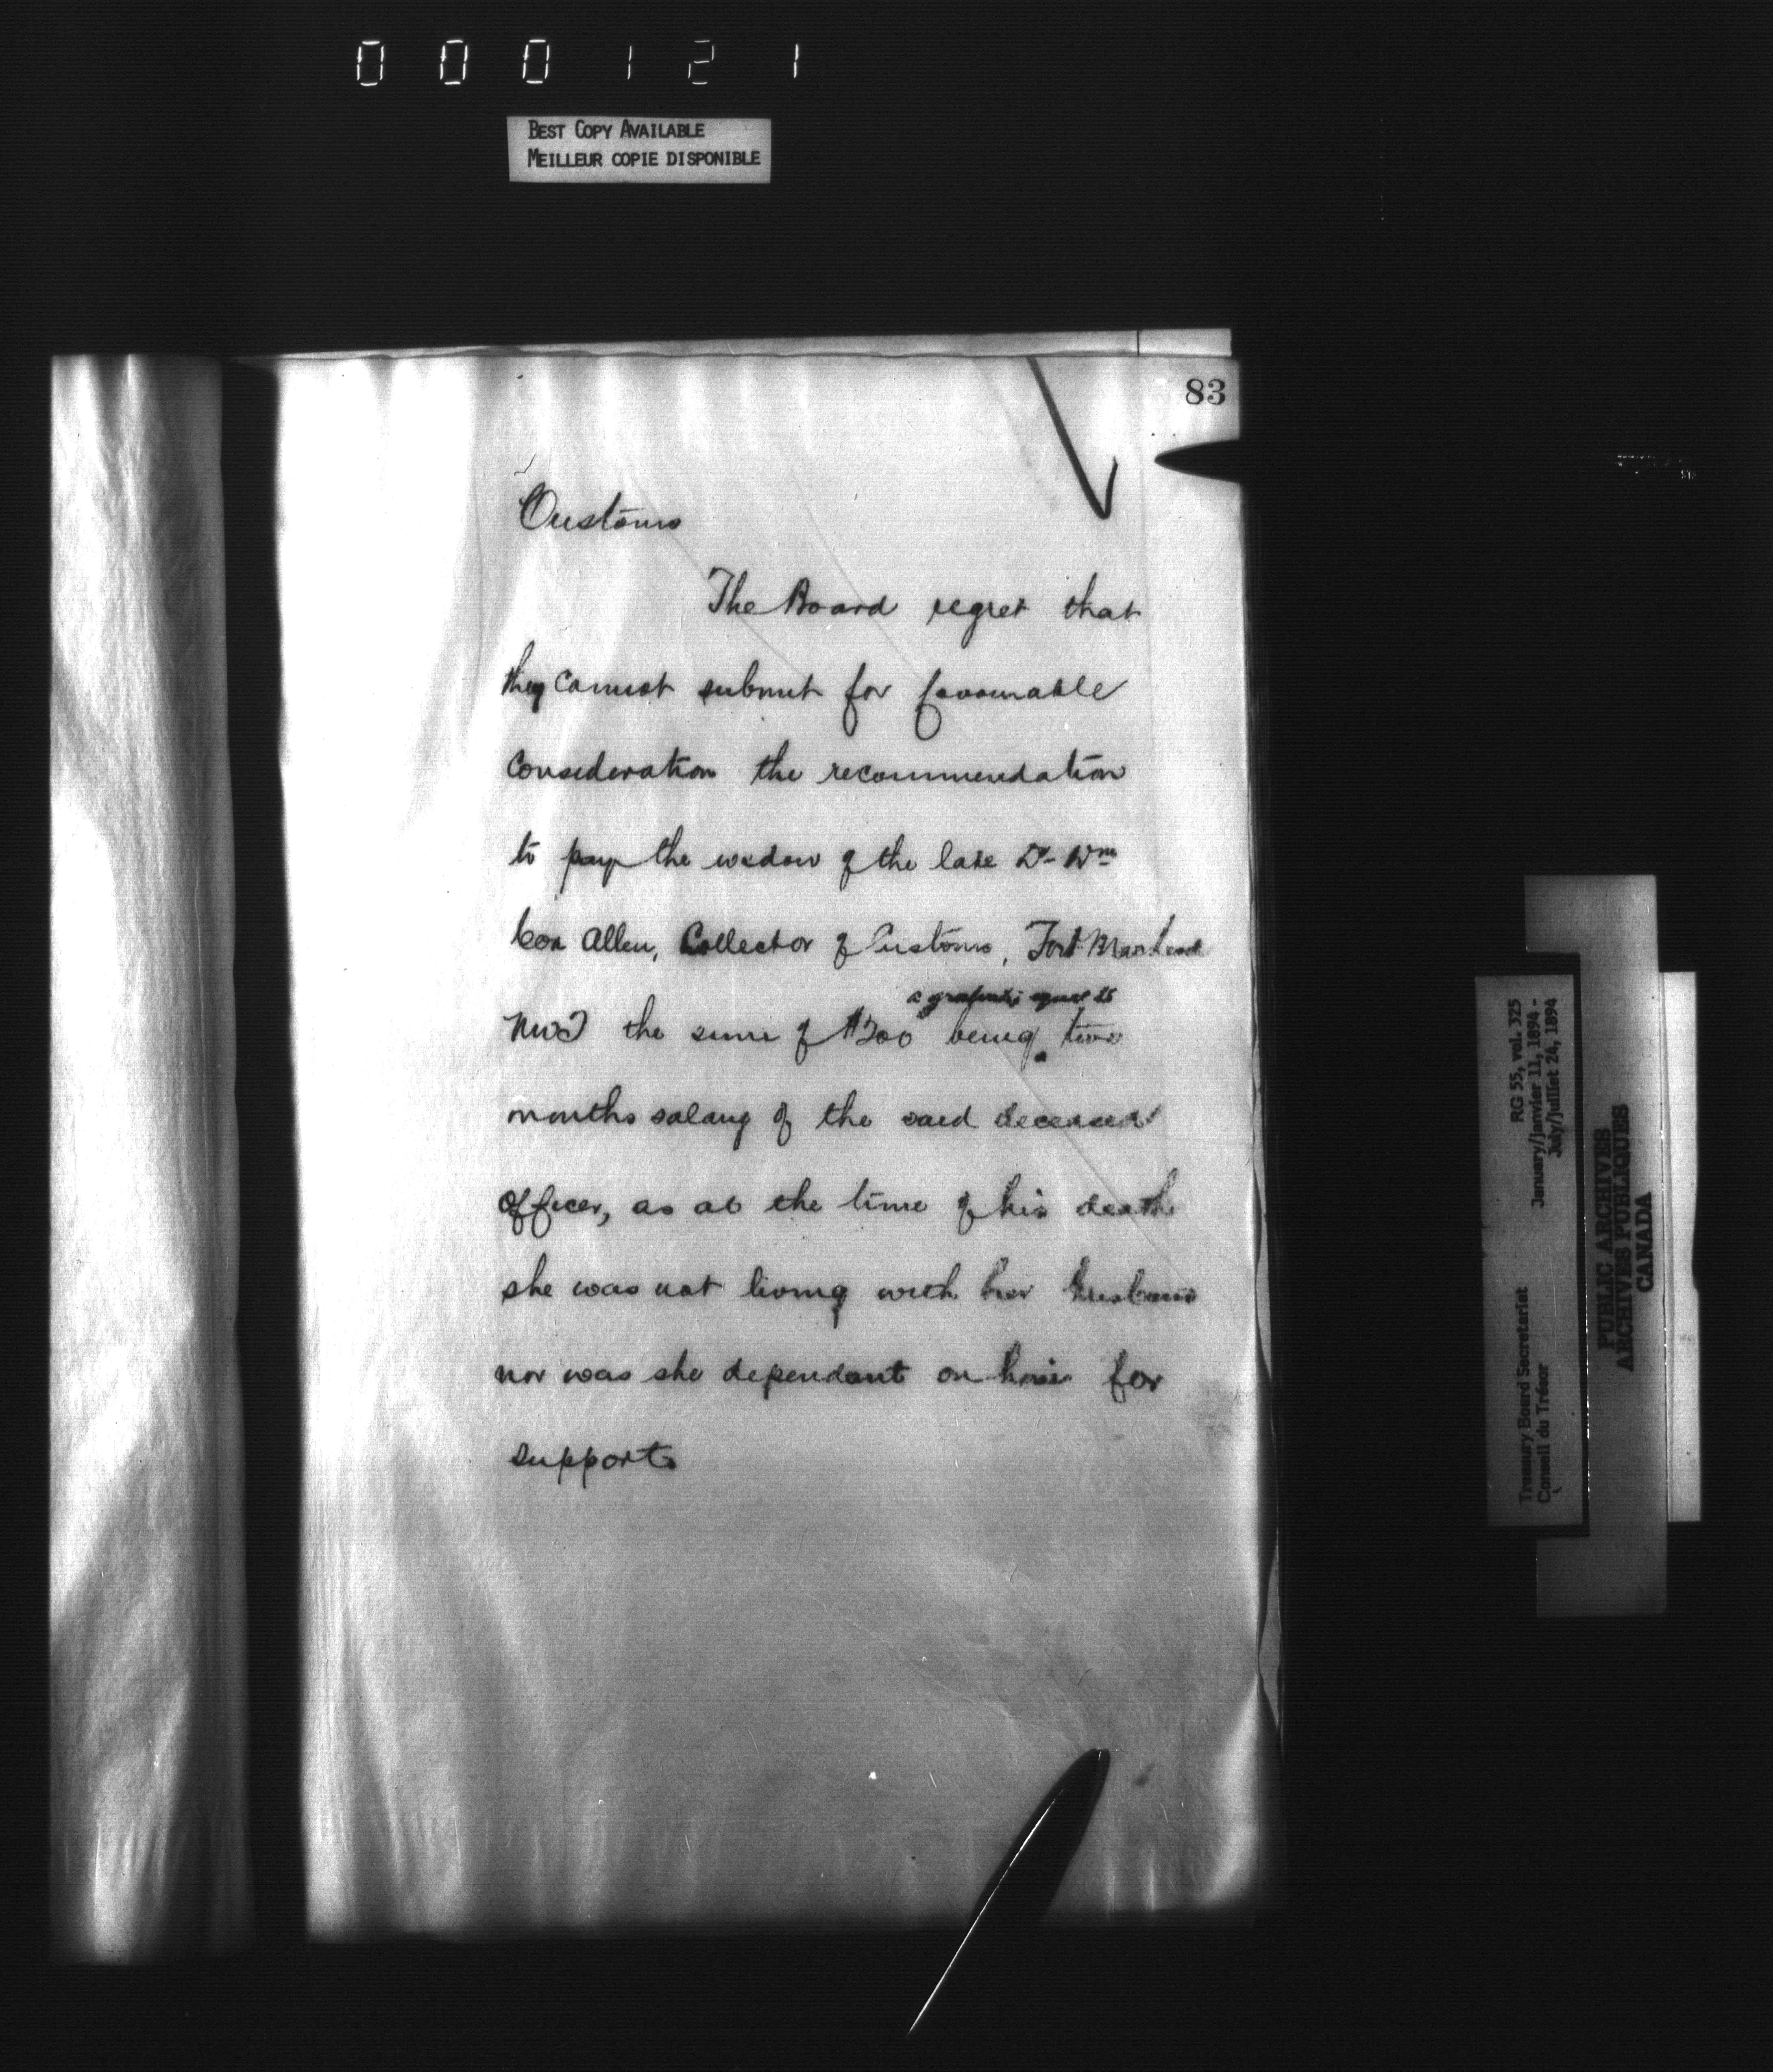 0 0 0 1 2 1
BEST COPY AVAILABLE
MEILLEUR COPIE DISPONIBLE
83
Customs
The Board regret that
they cannot submit for favourable
consideration the recommendation
to pay the widow of the late Dr Wm
Cox Allen, Collector of Customs, Fort Macleod
a gratuity equal to
NWT the sum of $200 being two
months salary of the said deceased
officer, as at the time of his death
she was not living with her husband
nor was she dependant on him for
support.
RG 55, vol. 325
January/janvier 11, 1894 -
July/juillet 24, 1894
Treasury Board Secretariat
Conseil du Trésor
PUBLIC ARCHIVES
ARCHIVES PUBLIQUES
CANADA